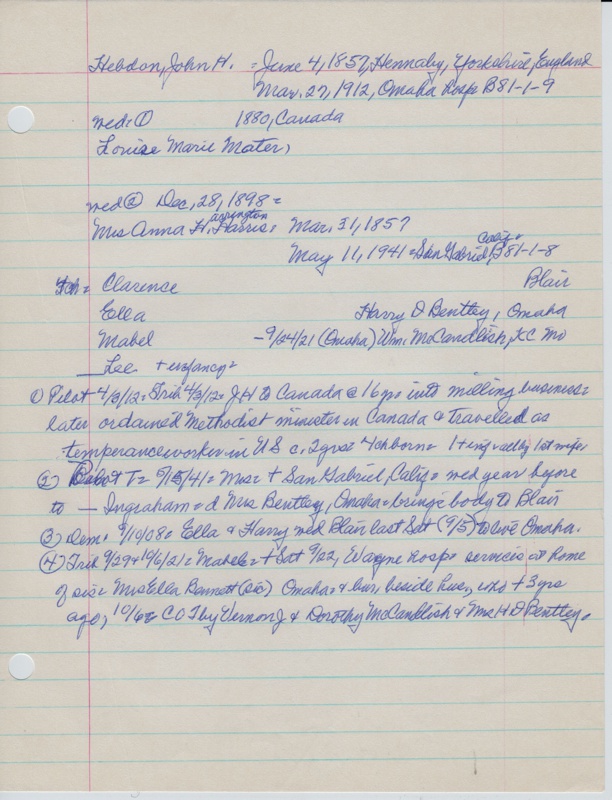 Hebdon, John H. = June 4, 1857, Hennaby, Yorkshire, England
Mar. 27, 1912, Omaha Hosp B81-1-9
med: ① 1880, Canada
Louise Marie Mater,
med ② Dec, 28, 1898 =
arrington
Mrs Anna H. Harris: Mar. 31, 1857
Calif =
May 11, 1941 = San Gabriel, B81-1-8
ch = Clarence Blair
Ella Harry D Bentley, Omaha
Mabel - 9/24/21 (Omaha) Wm. McCandlish, KC Mo
Lee + infancy =
① Pilot 4/3/12 = Trib 4/3/12 = JH to Canada @ 16 yrs into milling business =
later ordained Methodist minister in Canada & Travelled as
temperance worker in US c. 2 yrs = 4 ch born = 1 + inf = all by 1st wife
② Pilot T = 5/15/41 = Mrs = + San Gabriel, Calif = med year before
to — Ingraham = d Mrs Bentley, Omaha = bring body to Blair
③ Dem: 9/10/08 = Ella & Harry med Blair last Sat (9/5) to live Omaha.
④ Trib 9/29 & 10/6/21 = Mabel = + Sat 9/22, Wayne Hosp = services at home
of sis = Mrs Ella Barnett (sic) Omaha = & bur. beside hus, who + 3 yrs
ago, 10/6 = C O T by Vernon J & Dorothy McCandlish & Mrs H D Bentley.